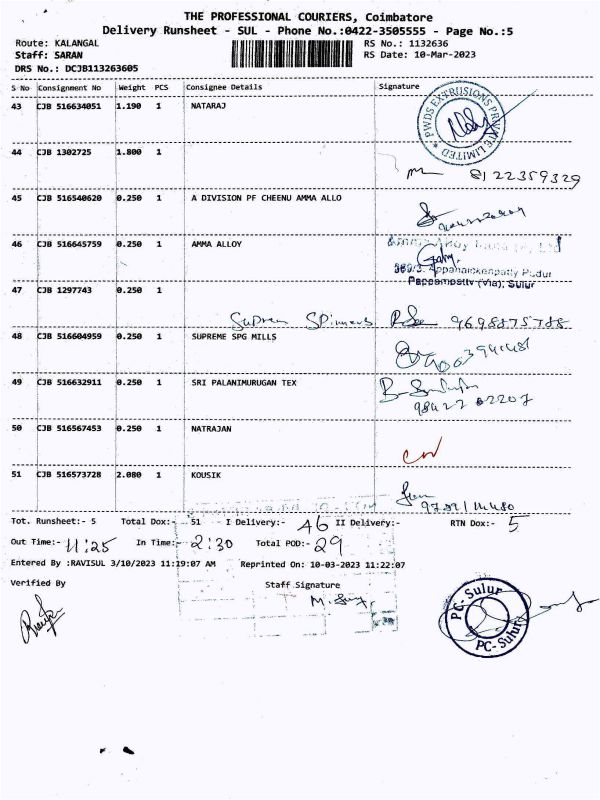 THE PROFESSIONAL COURIERS, Coimbatore
Delivery Runsheet - SUL - Phone No.:0422-3505555 - Page No.:5
Route: KALANGAL RS No.: 1132636
Staff: SARAN RS Date: 10-Mar-2023
DRS No.: DCJB113263605
S No Consignment No Weight PCS Consignee Details Signature
43 CJB 516634051 1.190 1 NATARAJ
PWDS EXTRUSIONS PRIVATE LIMITED
44 CJB 1302725 1.800 1
8122359329
45 CJB 516540620 0.250 1 A DIVISION PF CHEENU AMMA ALLO
46 CJB 516645759 0.250 1 AMMA ALLOY
Appanaickenpatty Pudur
Pappampatty (Via), Sulur
47 CJB 1297743 0.250 1
9698875788
48 CJB 516604959 0.250 1 SUPREME SPG MILLS
49 CJB 516632911 0.250 1 SRI PALANIMURUGAN TEX
98427 02207
50 CJB 516567453 0.250 1 NATRAJAN
51 CJB 516573728 2.080 1 KOUSIK
Tot. Runsheet:- 5 Total Dox:- 51 I Delivery:- 46 II Delivery:- RTN Dox:- 5
Out Time:- 11:25 In Time:- 2:30 Total POD:- 29
Entered By :RAVISUL 3/10/2023 11:19:07 AM Reprinted On: 10-03-2023 11:22:07
Verified By Staff Signature
PC-Sulur
PC-Sulur